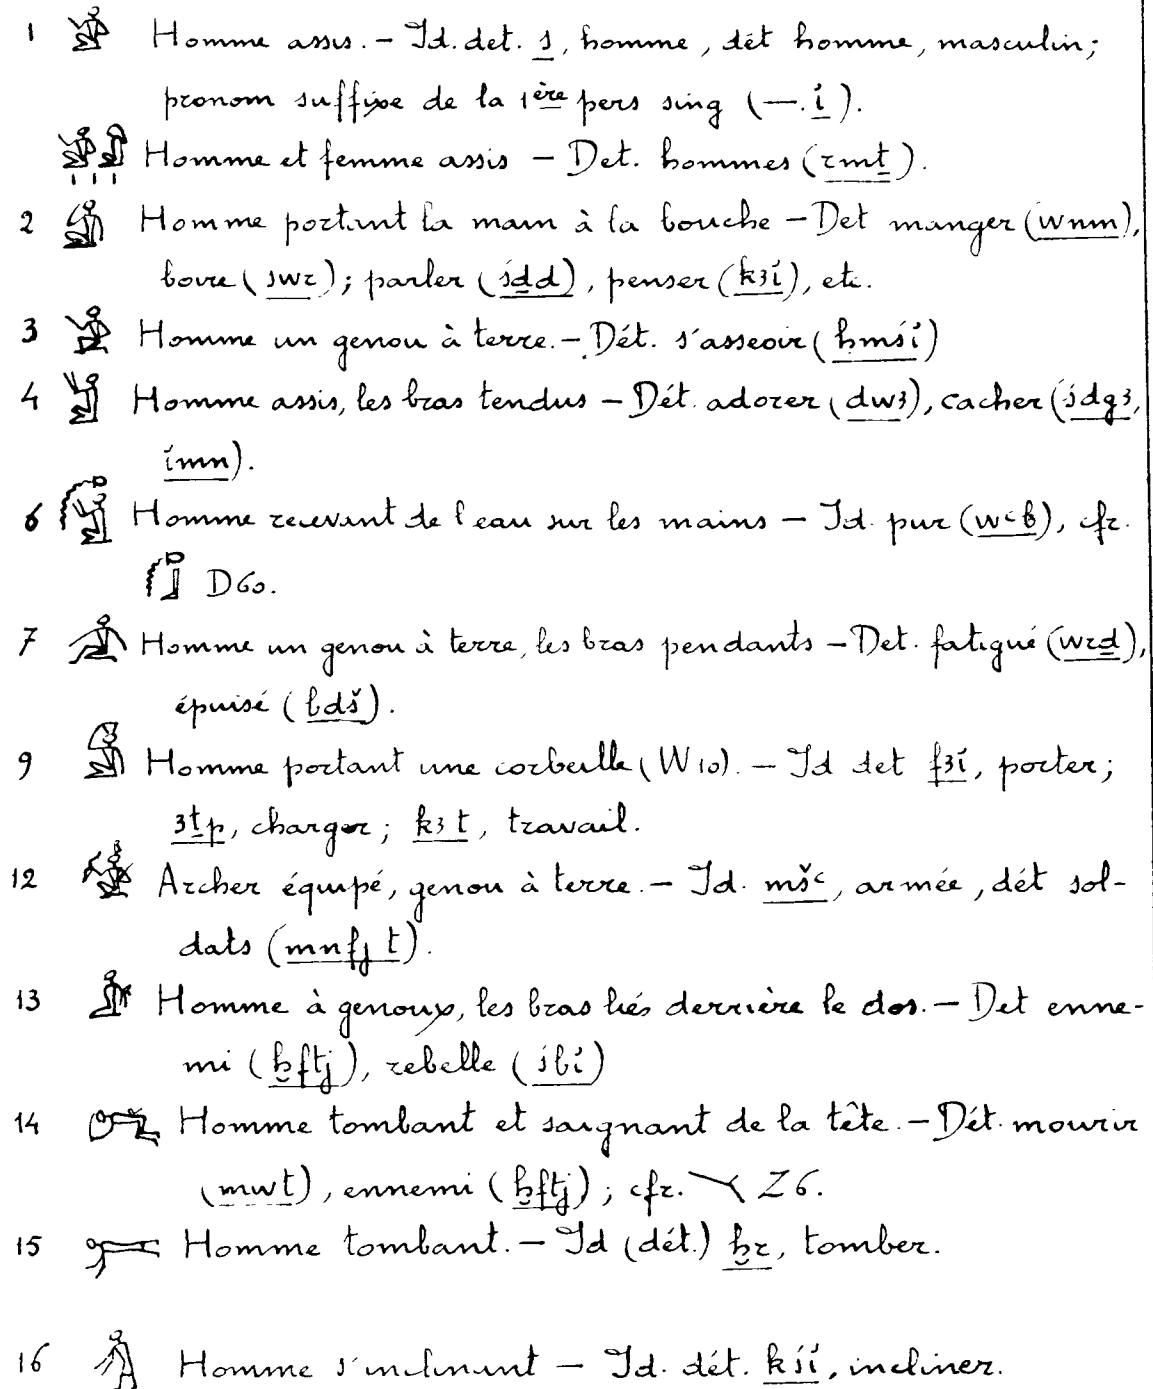 1 Homme assis. – Id. det. s, homme, dét homme, masculin;
pronom suffixe de la 1ère pers sing (—.ỉ).
Homme et femme assis – Det. hommes (rmṯ).
2 Homme portant la main à la bouche – Det manger (wnm),
boire (swr); parler (śḏd), penser (kꜣỉ), etc.
3 Homme un genou à terre. – Dét. s'asseoir (ḥmśỉ)
4 Homme assis, les bras tendus – Dét. adorer (dwꜣ), cacher (śdgꜣ,
ỉmn).
6 Homme recevant de l'eau sur les mains – Id. pur (wꜥb), cfr.
D60.
7 Homme un genou à terre, les bras pendants – Det. fatigué (wrḏ),
épuisé (bdš).
9 Homme portant une corbeille (W10). – Id det fꜣỉ, porter;
ꜣṯp, charger; kꜣ t, travail.
12 Archer équipé, genou à terre. – Id. mšꜥ, armée, dét sol-
dats (mnfj t).
13 Homme à genoux, les bras liés derrière le dos. – Det enne-
mi (ḫftj), rebelle (śbỉ)
14 Homme tombant et saignant de la tête. – Dét. mourir
(mwt), ennemi (ḫftj); cfr. Z6.
15 Homme tombant. – Id (dét.) ḫr, tomber.
16 Homme s'inclinant – Id. dét. kśỉ, incliner.